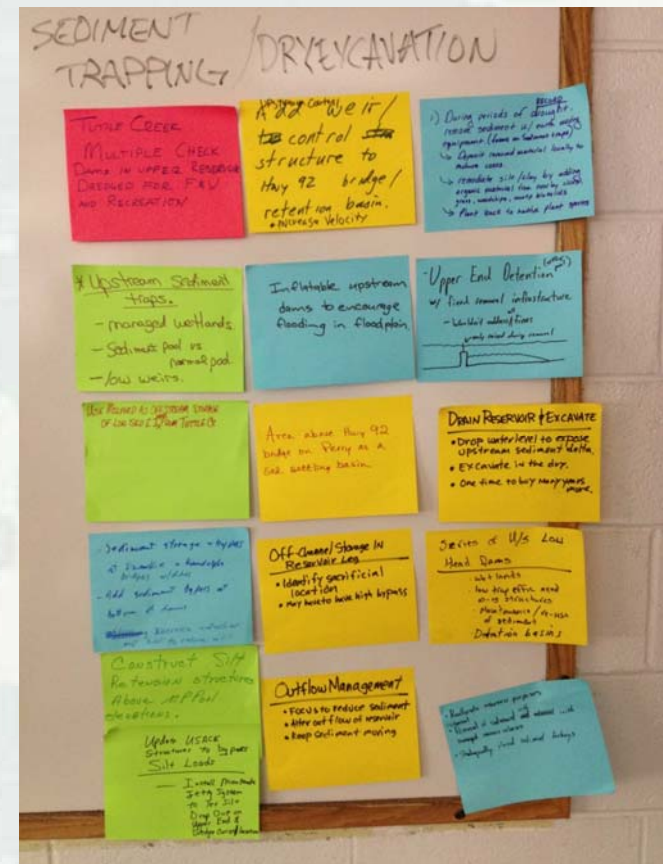 SEDIMENT
TRAPPING / DRY EXCAVATION
TUTTLE CREEK
MULTIPLE CHECK
DAMS IN UPPER RESERVOIR
DREDGED FOR F&W
AND RECREATION
Upstream Control
Add weir/
control
structure to
Hwy 92 bridge/
retention basin.
• INCREASE Velocity
RECORD
1) During periods of drought,
remove sediment w/ earth moving
equipment (focus on sediment traps)
↳ Deposit removed material locally to
reduce costs.
↳ remediate silt/clay by adding
organic material from nearby
grass, woodchips, 
↳ Plant back to native plant species
* Upstream Sediment
traps.
- managed wetlands.
- Sediment pool vs
normal pool
- low weirs.
Inflatable upstream
dams to encourage
flooding in floodplain.
- Upper End Detention
w/ fixed removal infrastructure
USE MILFORD AS OFFSTREAM STORAGE
Area above Hwy 92
bridge on Perry as a
sed. settling basin.
DRAIN RESERVOIR & EXCAVATE
• Drop water level to expose
upstream sediment delta.
• Excavate in the dry.
• One time to buy many years
more.
- Sediment storage + bypass
- Add sediment bypass at
bottom of dams
Off-Channel Storage In
Reservoir Leg
• Identify sacrificial
location
• May have to have high bypass
Series of U/S Low
Head Dams
- Wetlands
- low trap effic. need
structures
- Maintenance/re-use
of sediment
- Detention basins
Construct Silt
Retension structures
Above MP Pool
elevations.
Update USACE
Structures to bypass
Silt Loads
System
to
Drop Out on
Upper End &
Outflow Management
• Focus to reduce sediment
• Alter outflow of reservoir
• Keep sediment moving
• Reallocate reservoir purposes